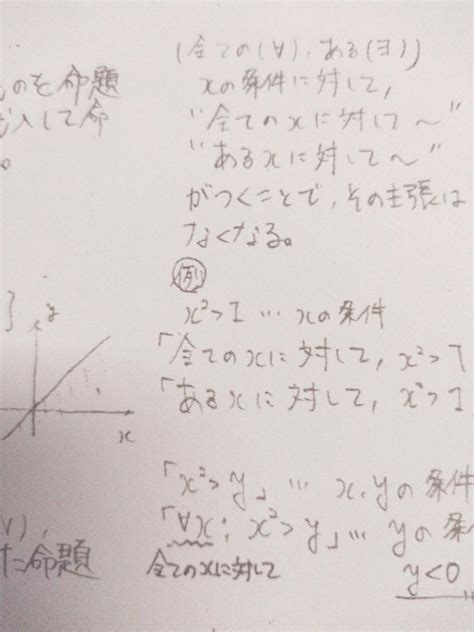 (全ての(∀), ある(ヨ))
ものを命題
xの条件に対して,
入して命
"全てのxに対して〜"
"あるxに対して〜"
がつくことで,その主張は
なくなる。
例
x²>1 … xの条件
「全てのxに対して, x²>1
「あるxに対して, x²>1
y
x
「x²>y」… x,yの条件
「∀x; x²>y」… yの条
た命題
全てのxに対して
y<0